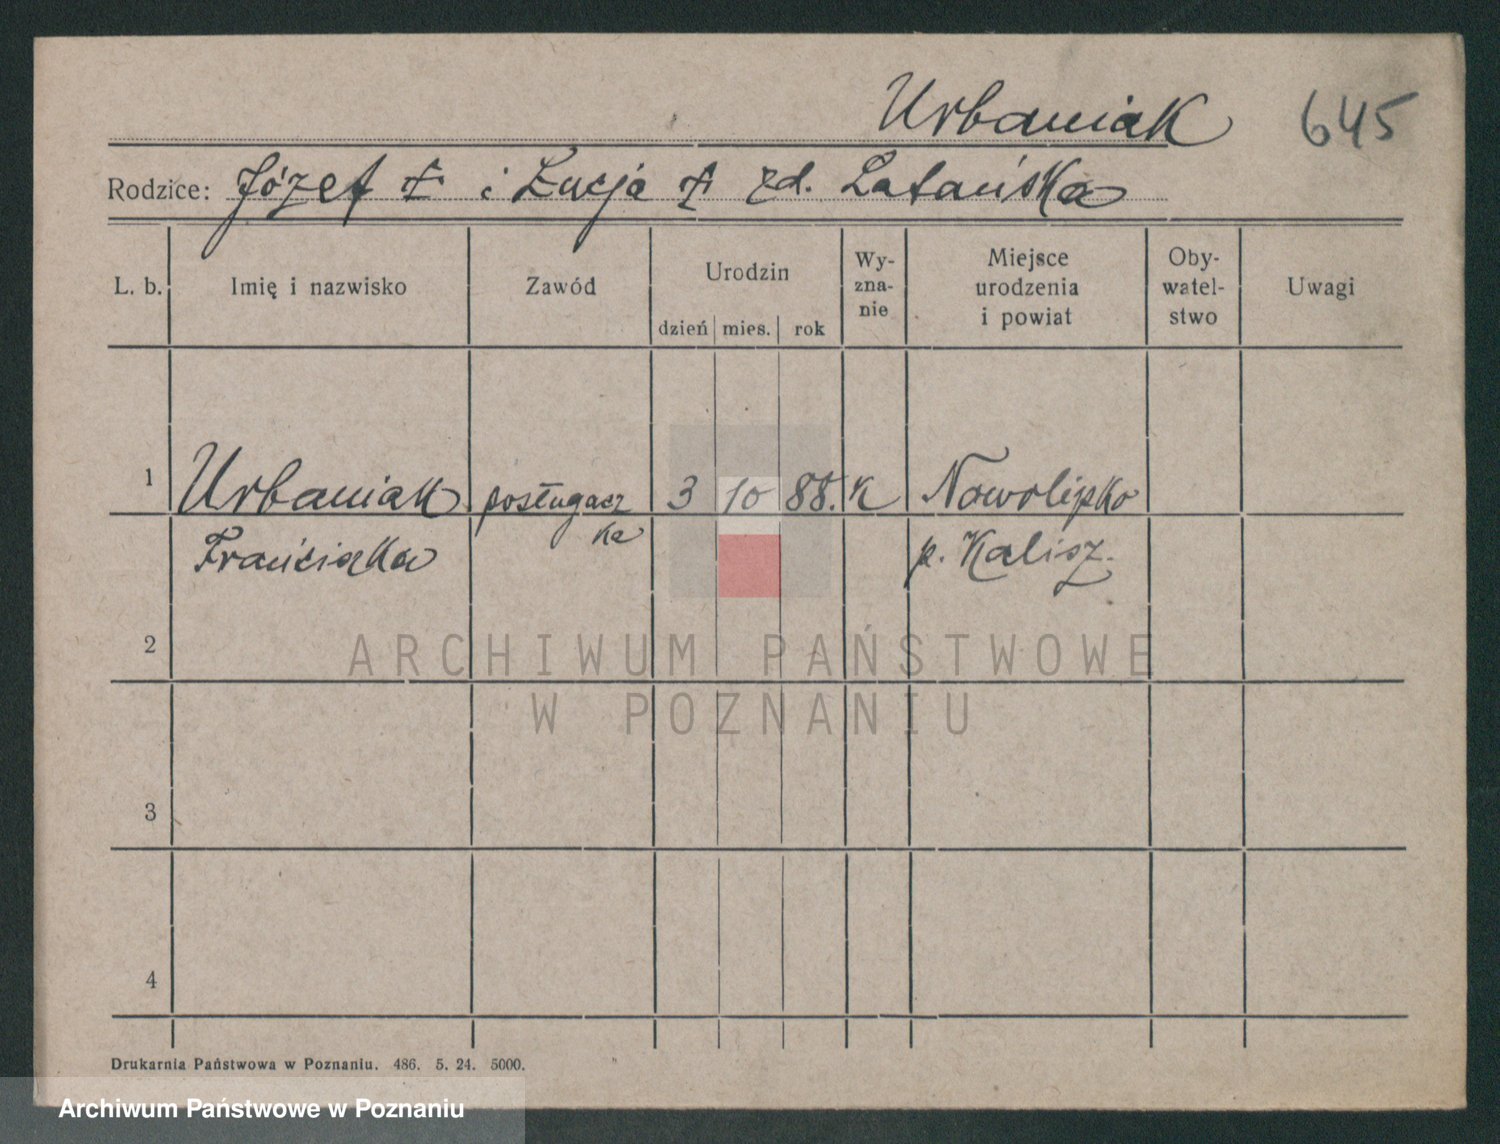 Urbaniak 645
Rodzice: Józef † i Łucja † zd. Latańska
L. b. Imię i nazwisko Zawód Urodzin dzień mies. rok Wy-zna-nie Miejsce urodzenia i powiat Oby-watel-stwo Uwagi
1 Urbaniak posługacz 3 10 88. K Nowolipsko
Franciszka ka p. Kalisz.
2
ARCHIWUM PAŃSTWOWE
W POZNANIU
3
4
Drukarnia Państwowa w Poznaniu. 486. 5. 24. 5000.
Archiwum Państwowe w Poznaniu